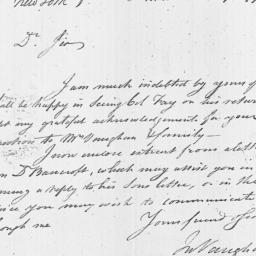 New York
Dr Sir
I am much indebted by yours of
shall be happy in seeing Col Fay on his return
my grateful acknowledgements for your
to Mr Vaughan & family—
I now enclose extract from a letter
Dr Bancroft, which may assist you in
a reply to his Sons letter, or in the
you may wish to communicate
through me
Yours friend
Jn Vaughan